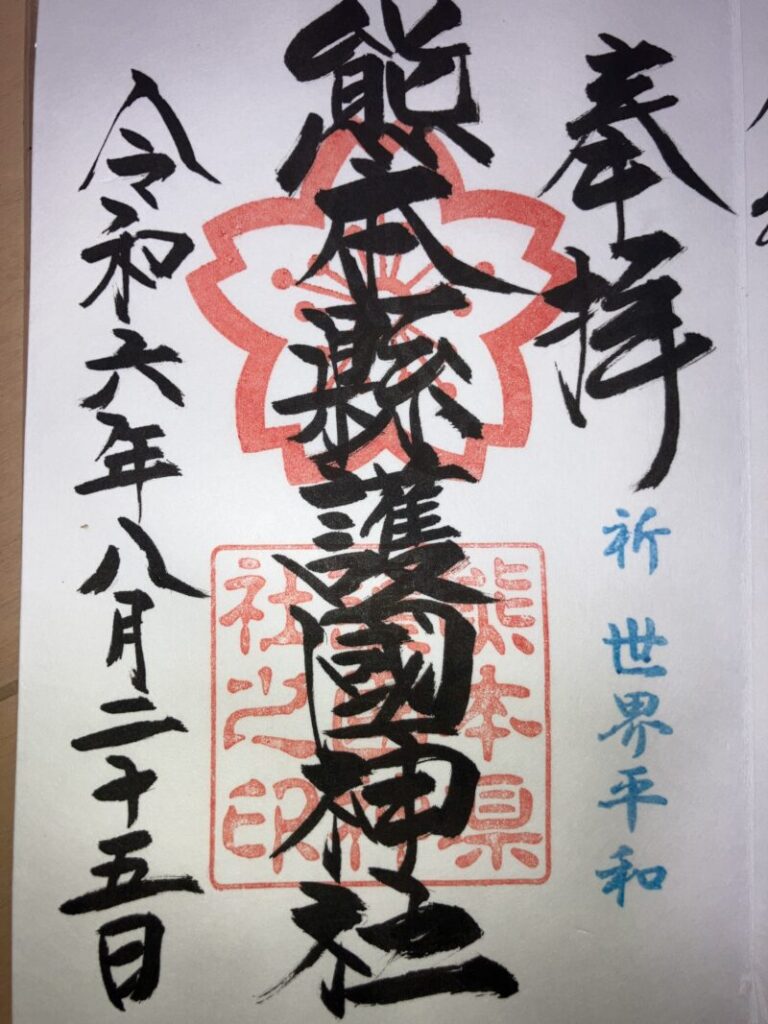 奉拝
祈 世界平和
熊本縣護國神社
熊本県
護国神
社之印
令和六年八月二十五日